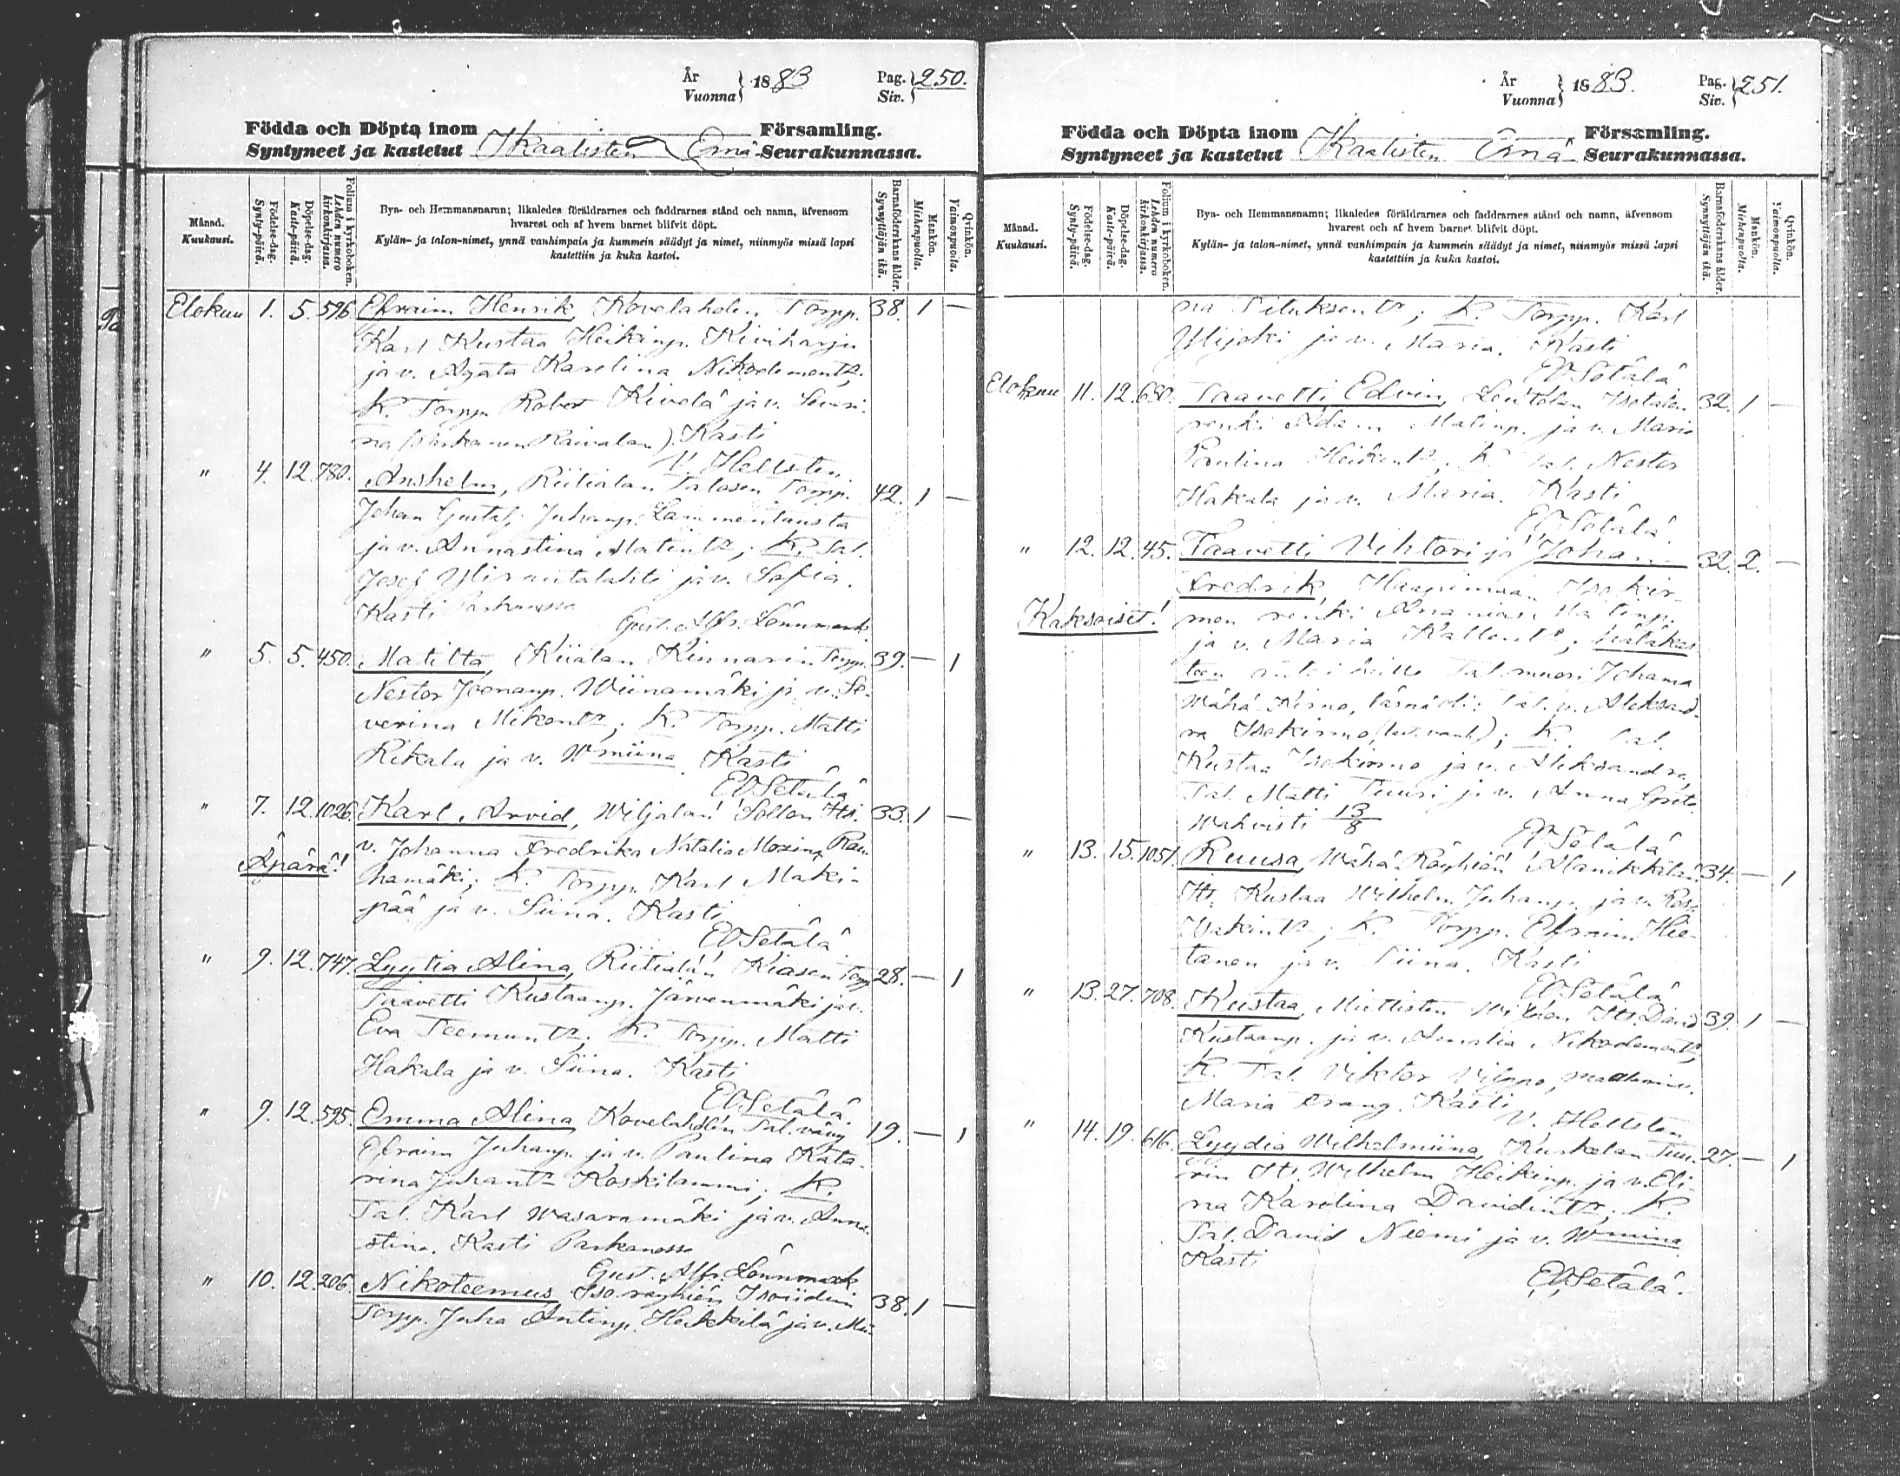 År
Vuonna } 1883 Pag.
Siv. } 250.
Födda och Döpta inom Församling.
Syntyneet ja kastetut Ikaalisten Emä Seurakunnassa.
Månad.
Kuukausi.
Födelse-dag.
Synty-päivä.
Döpelse-dag.
Kaste-päivä.
Folium i kyrkoboken.
Lehden numero
kirkonkirjassa.
Bya- och Hemmansnamn; likaledes föräldrarnes och faddrarnes stånd och namn, äfvensom
hvarest och af hvem barnet blifvit döpt.
Kylän- ja talon-nimet, ynnä vanhimpain ja kummein säädyt ja nimet, niinmyös missä lapsi
kastettiin ja kuka kastoi.
Barnaföderskans ålder.
Synnyttäjän ikä.
Mankön.
Miehenpuolta.
Qvinkön.
Vaimonpuolta.
Elokuu 1. 5. 596 Efraim Henrik, Kovelahden Torpp. 38. 1 —
Karl Kustaa Heikinp. Kiviharju
ja v. Agata Karolina Nikodemont.;
K. Torpp. Kivelä ja v. Seve-
na Kasti
V. Hellsten
" 4. 12. 780. Anshelm, Riitialan Talosen Torpp. 42. 1 —
Johan Gustaf Juhanp. Lammentausta
ja v. Annastina Matint.; K. Tal.
Josef ja v. Sofia.
Kasti Parkanossa
Gust. Alfr. Lönnmark.
" 5. 5. 450. Matilta, Kiialan Kinnarin Torpp. 39. — 1
Nestor Joonanp. Wiinamäki ja v. Se-
verina Mikont.; K. Torpp. Matti
Rikala ja v. Wmiina. Kasti
EV Setälä
" 7. 12. 1026. Karl Arvid, Wiljalan Sollon Its. 33. 1 —
Äpärä!
v. Johanna Fredrika Natalia Rau-
hamäki; K. Torpp. Karl Maki-
pää ja v. Siina. Kasti
EV Setälä
" 9. 12. 747. Lyytia Alina, Riitialan Kiasen Torpp 28. — 1
Taavetti Kustaanp. Järvenmäki ja v.
Eva Teemunt.; K. Torpp. Matti
Hakala ja v. Siina. Kasti
EV Setälä
" 9. 12. 595. Emma Alina, Kovelahden Tal. vävy 19. — 1
Efraim Juhanp. ja v. Paulina Kata-
rina Juhant. Koskilammi; K.
Tal. Karl Wasaramäki ja v. Anna-
stina. Kasti Parkanossa
Gust. Alfr. Lönnmark
" 10. 12. 206. Nikoteemus, Iso röyhiön 38. 1 —
Torpp. Juha Antinp. Heikkilä ja v. Mii-
År
Vuonna } 1883. Pag.
Siv. } 251.
Födda och Döpta inom Församling.
Syntyneet ja kastetut Ikaalisten Emä Seurakunnassa.
Månad.
Kuukausi.
Födelse-dag.
Synty-päivä.
Döpelse-dag.
Kaste-päivä.
Folium i kyrkoboken.
Lehden numero
kirkonkirjassa.
Bya- och Hemmansnamn; likaledes föräldrarnes och faddrarnes stånd och namn, äfvensom
hvarest och af hvem barnet blifvit döpt.
Kylän- ja talon-nimet, ynnä vanhimpain ja kummein säädyt ja nimet, niinmyös missä lapsi
kastettiin ja kuka kastoi.
Barnaföderskans ålder.
Synnyttäjän ikä.
Mankön.
Miehenpuolta.
Qvinkön.
Vaimonpuolta.
na K. Torpp. Karl
Ylijoki ja v. Maria. Kasti
EV Setälä.
Elokuu 11. 12. 680. Taavetti Edvin, Leutolan Isotalon 32. 1 —
renki Matinp. ja v. Maria
Paulina Heikint. K. Tal. Nestor
Hakala ja v. Maria. Kasti
EV Setälä.
" 12. 12. 45. Taavetti Vihtori ja Joha 32. 2. —
Fredrik, Haapimaan Isokir-
Kaksoiset! mon renki Ananias Matinp.
ja v. Maria Kallent.; hätäkas-
teen antoi Tal. muori Johanna
Wähä Kirmo, läsnäoli: Tal. v. Aleksand-
ra Isokirmo K. Tal.
Kustaa Isokirmo ja v. Aleksandra,
Tal. Matti Tuuri ja v. Anna
Wahvisti 13/8
EV Setälä
" 13. 15. 1051. Ruusa, Wähä Röyhiön Alanikkilän 34. — 1
It. Kustaa Wilhelm Juhanp. ja v. Rosa
Iisakint.; K. Torpp. Efraim Hie-
tanen ja v. Siina. Kasti
EV Setälä
" 13. 27. 708. Kustaa, Miettisten Its. David 39. 1 —
Kustaanp. ja v. Amalia Nikodemont.;
K. Tal. Viktor
Maria Kasti
V. Hellsten
" 14. 19. 616. Lyydia Wilhelmiina, Kuskolan Tuu- 27. — 1
rin It. Wilhelm Heikinp. ja v. Eli-
na Karolina Davidint. K.
Tal. David Niemi ja v. Wmiina
Kasti
EV Setälä.